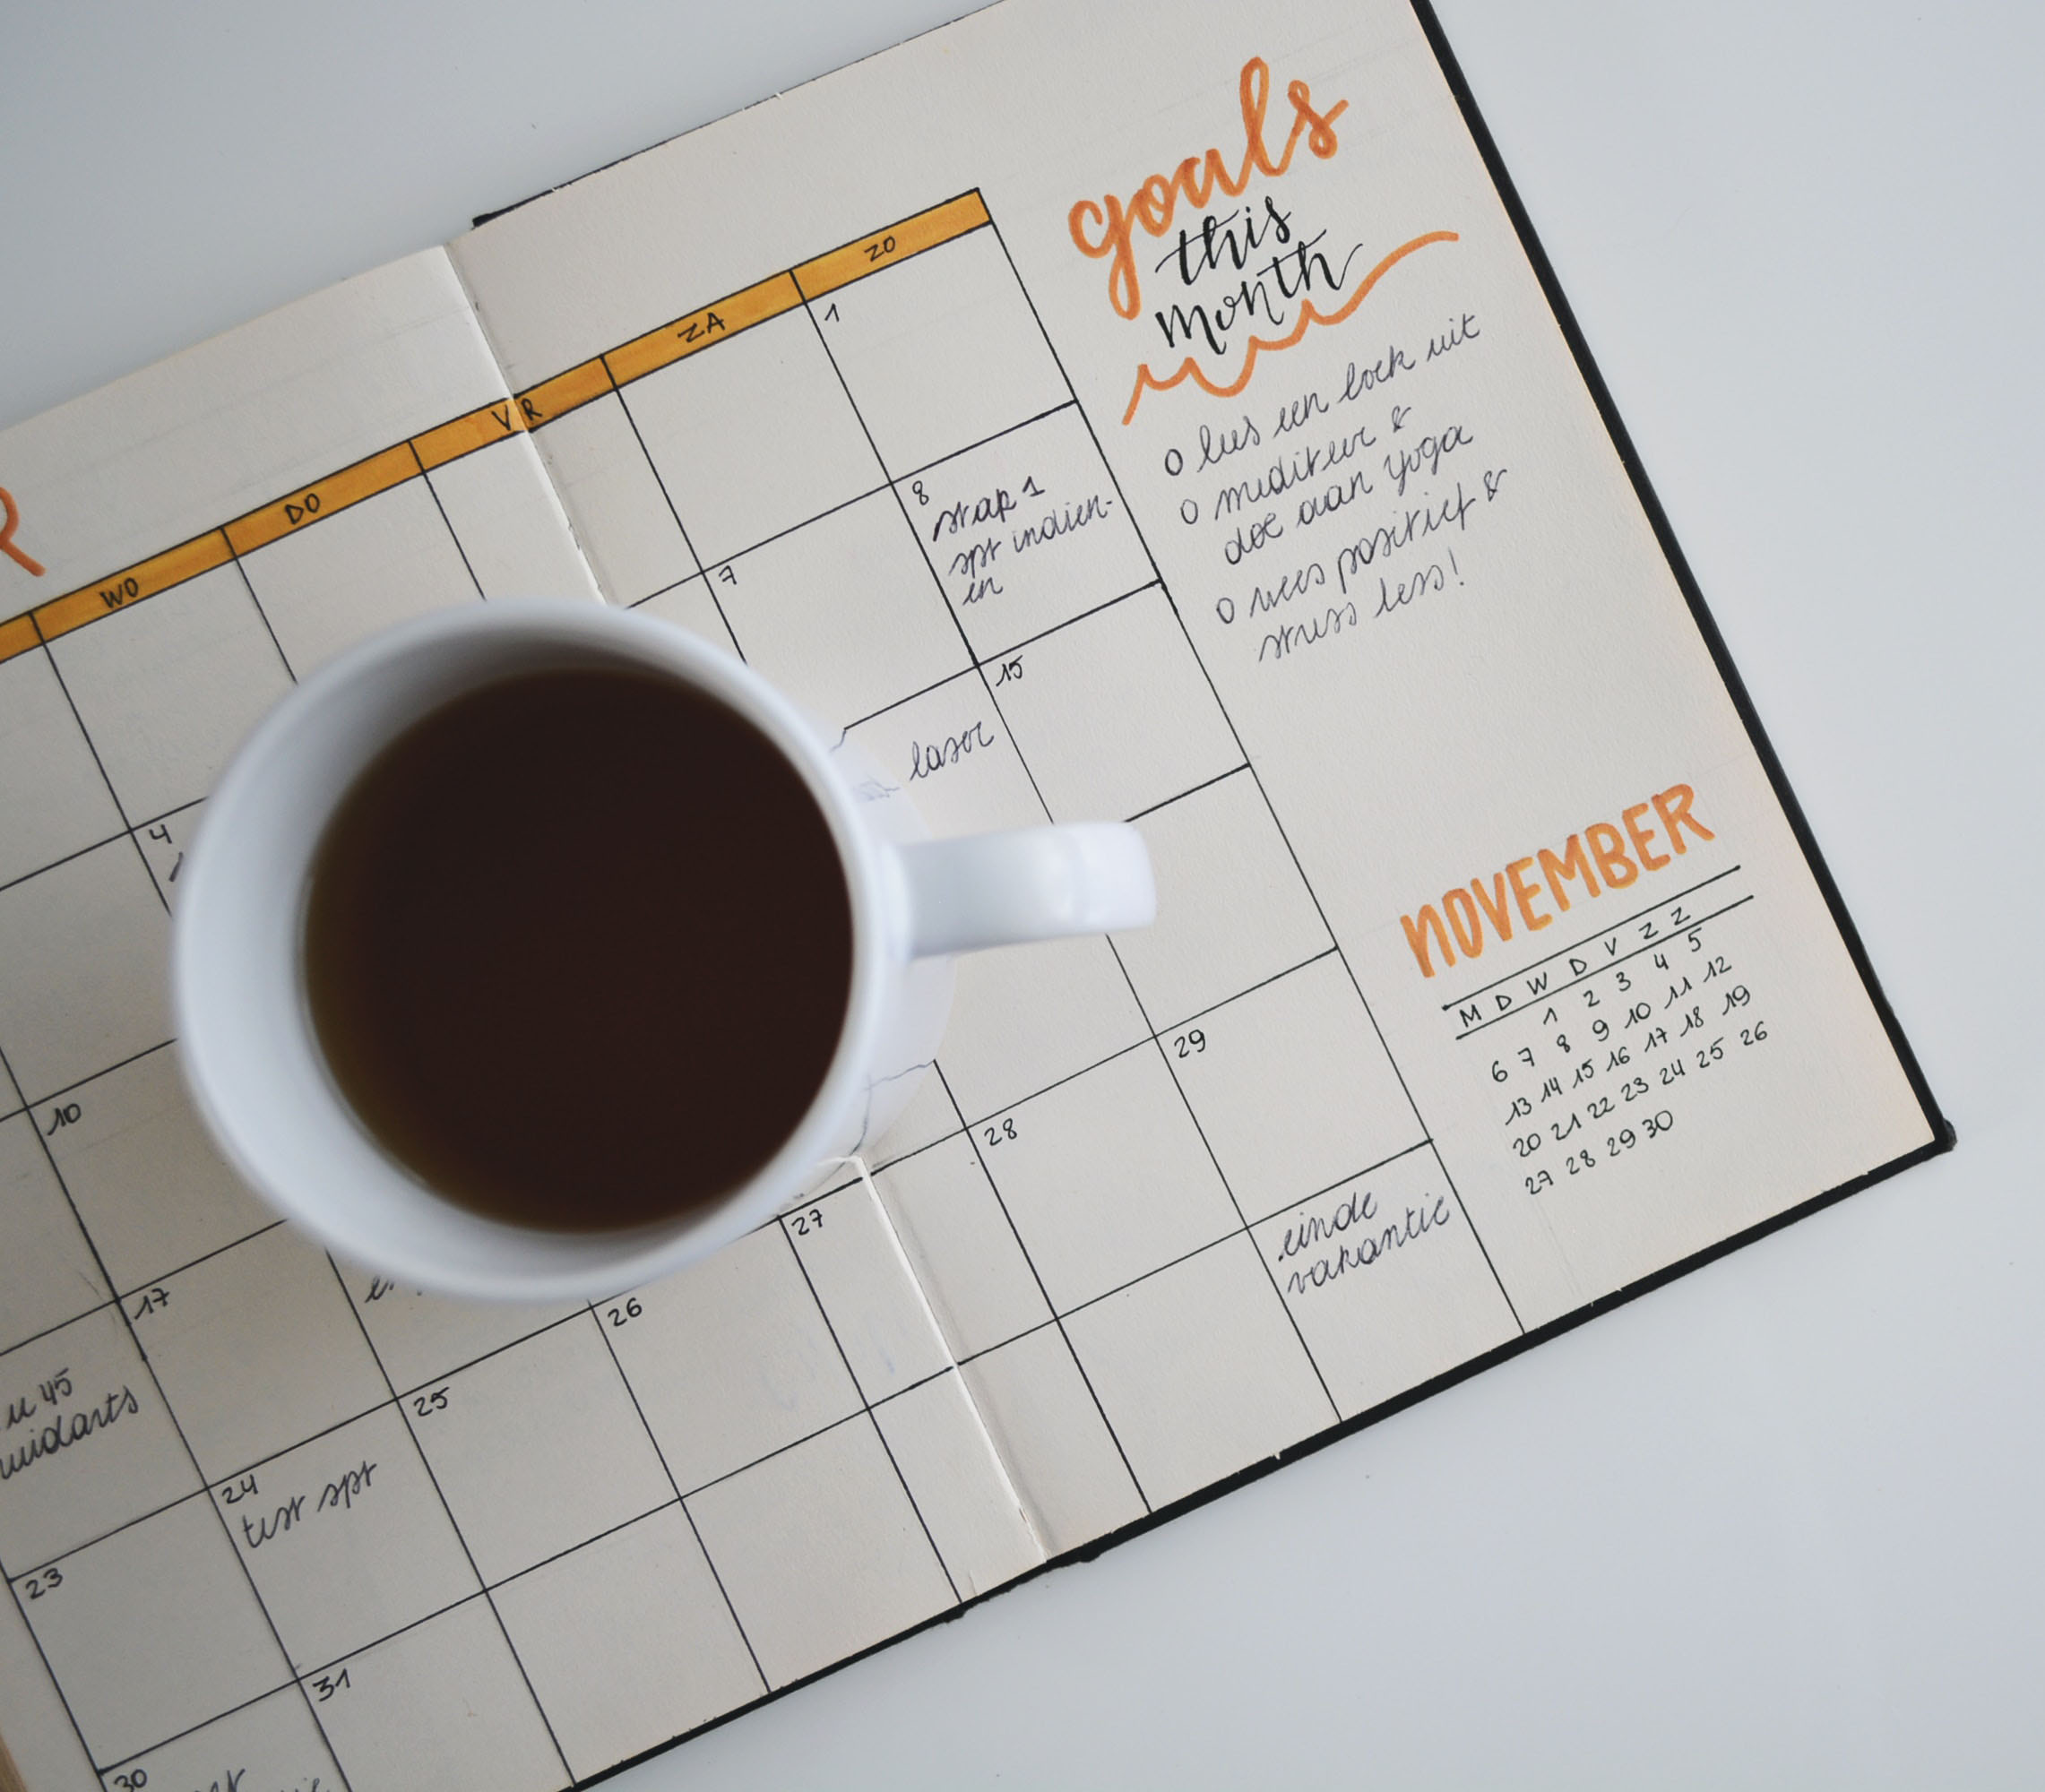 R
WO DO VR ZA ZO
1
4 7 8
stap 1
spr indien-
en
10 15
laser
17
u 45
24 25 26 27 28 29
test spr
23
30 31
einde
vakantie
goals
this
month
o lees een boek uit
o mediteer &
doe aan yoga
o wees positief &
stress less!
NOVEMBER
M D W D V Z Z
1 2 3 4 5
6 7 8 9 10 11 12
13 14 15 16 17 18 19
20 21 22 23 24 25 26
27 28 29 30